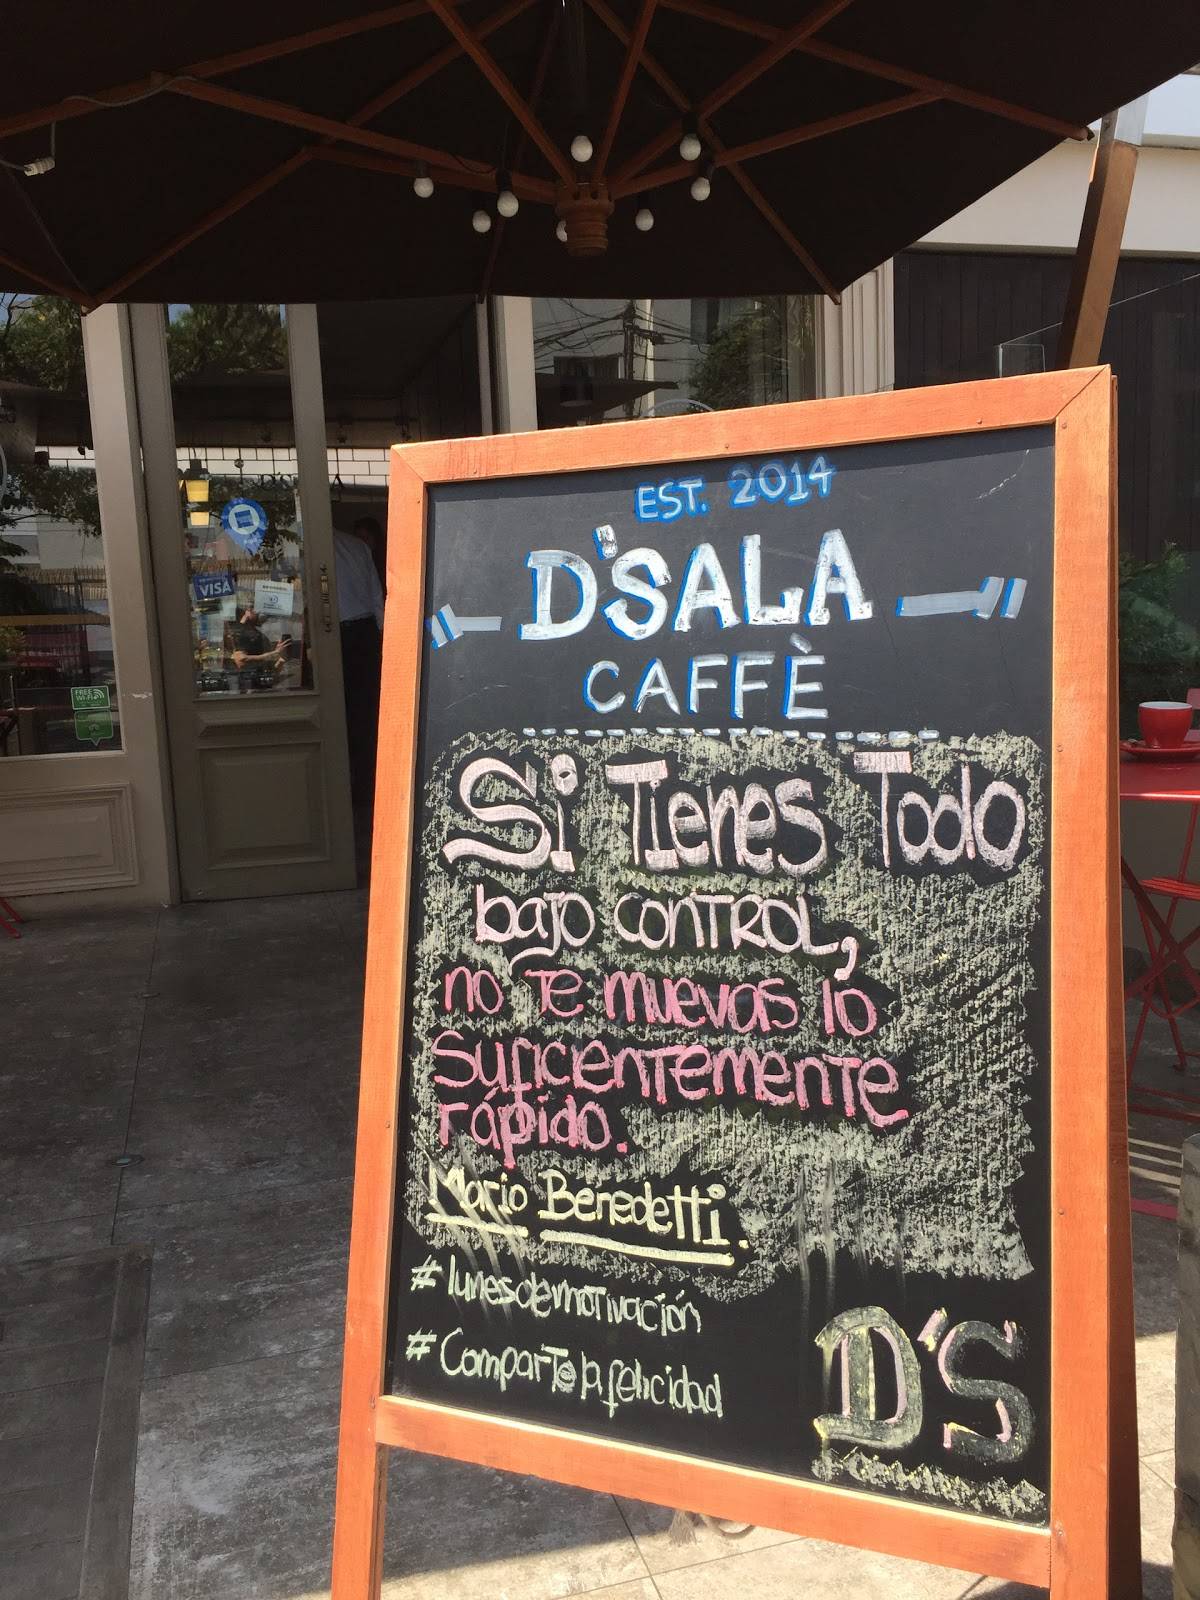 EST. 2014
D'SALA
CAFFÈ
Si Tienes Todo
bajo control,
no te muevas lo
suficientemente
rápido.
Mario Benedetti.
#lunesdemotivación
#Compartelafelicidad
D'S
VISA
FREE
Wi-Fi